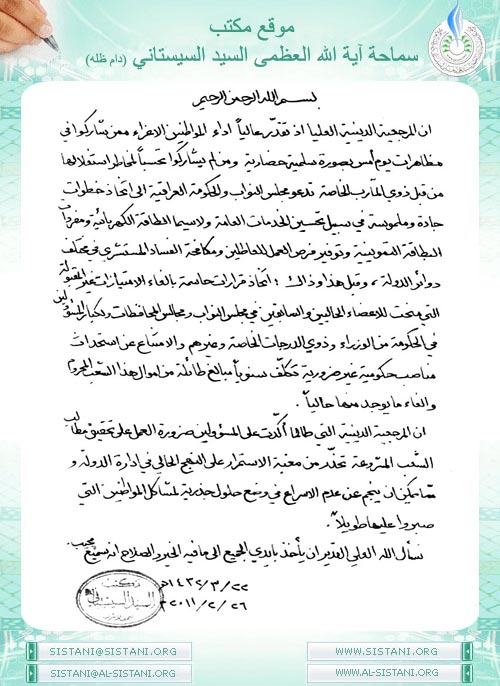 موقع مكتب
سماحة آية الله العظمى السيد السيستاني (دام ظله)
بسم الله الرحمن الرحيم
ان المرجعية الدينية العليا اذ تقدّر عالياً اداء المواطنين الاعزاء ممن شاركوا في
مظاهرات يوم أمس بصورة سلمية حضارية ومن لم يشاركوا تحسباً لمخاطر استغلالها
من قبل ذوي المآرب الخاصة تدعو مجلس النواب والحكومة العراقية الى اتخاذ خطوات
جادة وملموسة في سبيل تحسين الخدمات العامة ولاسيما الطاقة الكهربائية ومفردات
البطاقة التموينية وتوفير فرص العمل للعاطلين ومكافحة الفساد المستشري في مختلف
دوائر الدولة، وقبل هذا وذاك : اتخاذ قرارات حاسمة بالغاء الامتيازات غير المقبولة
التي منحت للاعضاء الحاليين والسابقين في مجلس النواب ومجالس المحافظات ولكبار المسؤولين
في الحكومة من الوزراء وذوي الدرجات الخاصة وغيرهم والامتناع عن استحداث
مناصب حكومية غير ضرورية تكلّف سنوياً مبالغ طائلة من اموال هذا الشعب المحروم
والغاء ما يوجد منها حالياً.
ان المرجعية الدينية التي طالما أكّدت على المسؤولين ضرورة العمل على تحقيق مطالب
الشعب المشروعة تحذّر من مغبة الاستمرار على النهج الحالي في ادارة الدولة و
مما يمكن ان ينجم عن عدم الاسراع في وضع حلول جذرية لمشاكل المواطنين التي
صبروا عليها طويلاً.
نسأل الله العلي القدير ان يأخذ بايدي الجميع الى ما فيه الخير والصلاح انه سميع مجيب.
٢٢/٣/١٤٣٢هـ
٢٦/٢/٢٠١١م
مكتب
السيد السيستاني
SISTANI@SISTANI.ORG
WWW.SISTANI.ORG
SISTANI@AL-SISTANI.ORG
WWW.AL-SISTANI.ORG